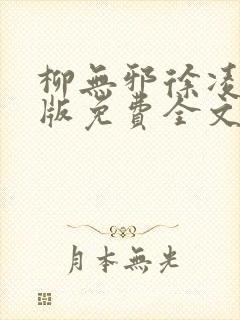 柳無邪徐凌
版免費全文
月本無光